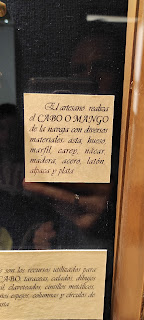 El artesano realiza
el CABO O MANGO
de la navaja con diversos
materiales: asta, hueso,
marfil, carey, nácar,
madera, acero, latón,
alpaca y plata
son los recursos utilizados para
CABO: taraceas, calados, dibujos
claveteados, cintillos metálicos,
espejo, columnas y círculos de